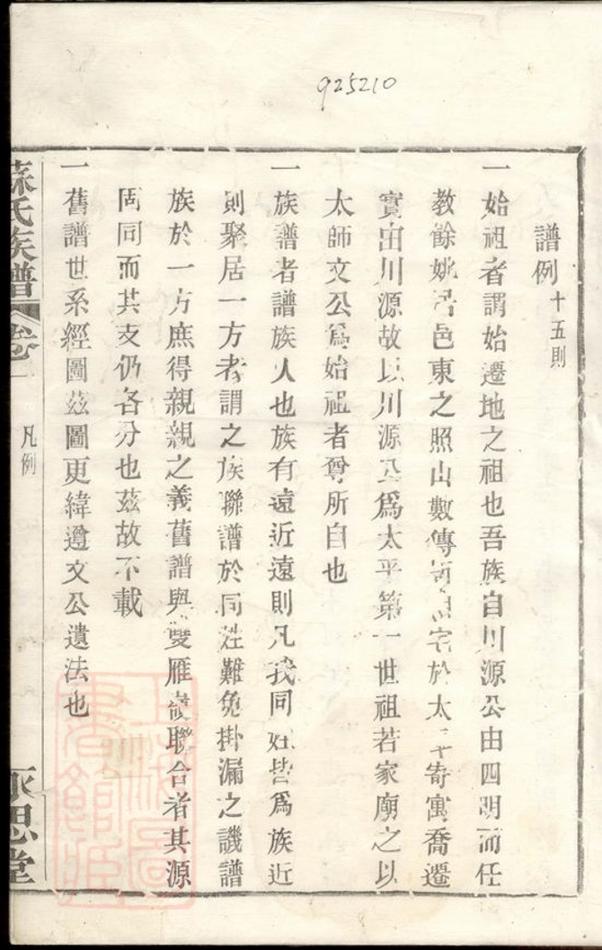 925210
譜例十五則
一始祖者謂始遷地之祖也吾族自川源公由四明而任
教餘姚居邑東之照山數傳宅於太平寄寓喬遷
實由川源故以川源公爲太平第一世祖若家廟之以
太師文公爲始祖者尊所自也
一族譜者譜族人也族有遠近遠則凡我同姓皆爲族近
則聚居一方者謂之族聯譜於同姓難免掛漏之譏譜
族於一方庶得親親之義舊譜與雙雁聯合者其源
固同而其支仍各分也茲故不載
一舊譜世系經圖茲圖更緯遵文公遺法也
蘇氏族譜
卷一
凡例
永思堂